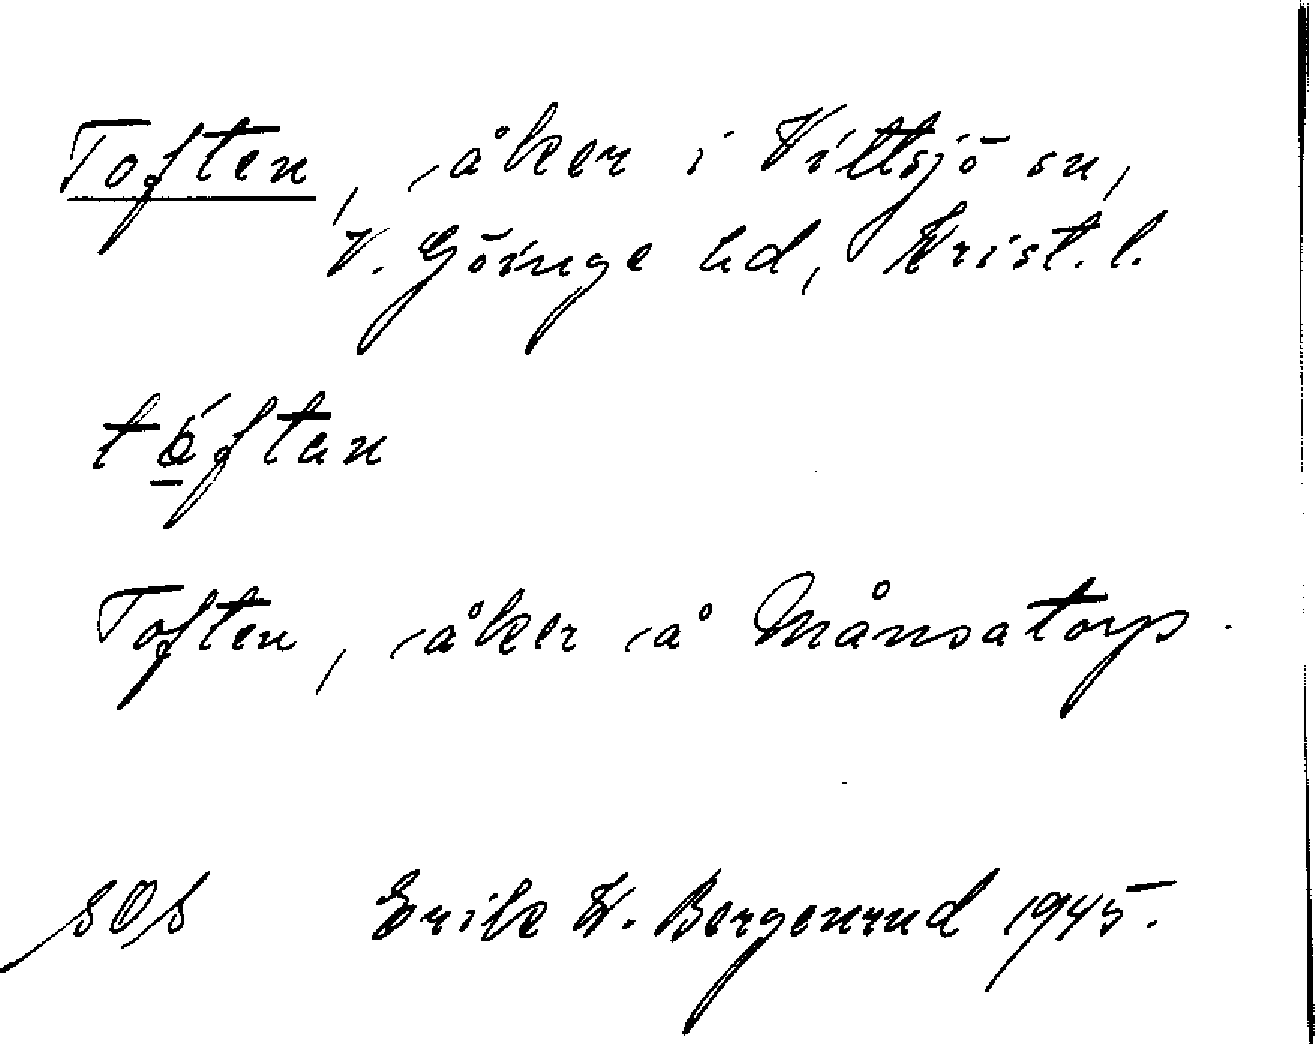 Toften, åker i Vittsjö sn,
V. Göinge hd, Krist. l.
tóftan
Toften, åker å Månsatorp.
Erik W. Bergenrud 1945.